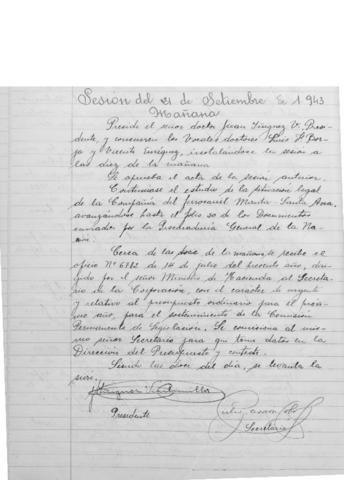 Sesion del 21 de Setiembre de 1943
Mañana
Preside el señor doctor Juan Iñiguez V. Presi-
dente, y concurren los Vocales doctores Luis F. Bor-
ja y Vicente Enríquez, instalándose la sesión a
las diez de la mañana
Se aprueba el acta de la sesión anterior.
Continúase el estudio de la situación legal
de la Compañía del ferrocarril Manta-Santa Ana,
avanzándose hasta el folio 30 de los Documentos
enviados por la Procuraduría General de la Na-
ción.
Cerca de las doce de la mañana, se recibe el
oficio Nº 6782 de 14 de julio del presente año, diri-
gido por el señor Ministro de Hacienda al Secreta-
rio de la Corporación, con el carácter de urgente
y relativo al presupuesto ordinario para el próxi-
mo año, para el sostenimiento de la Comisión
Permanente de Legislación. Se comisiona al mis-
mo señor Secretario para que tome datos en la
Dirección del Presupuesto y conteste.
Siendo las doce del día, se levanta la
sesión.
Presidente
Secretario